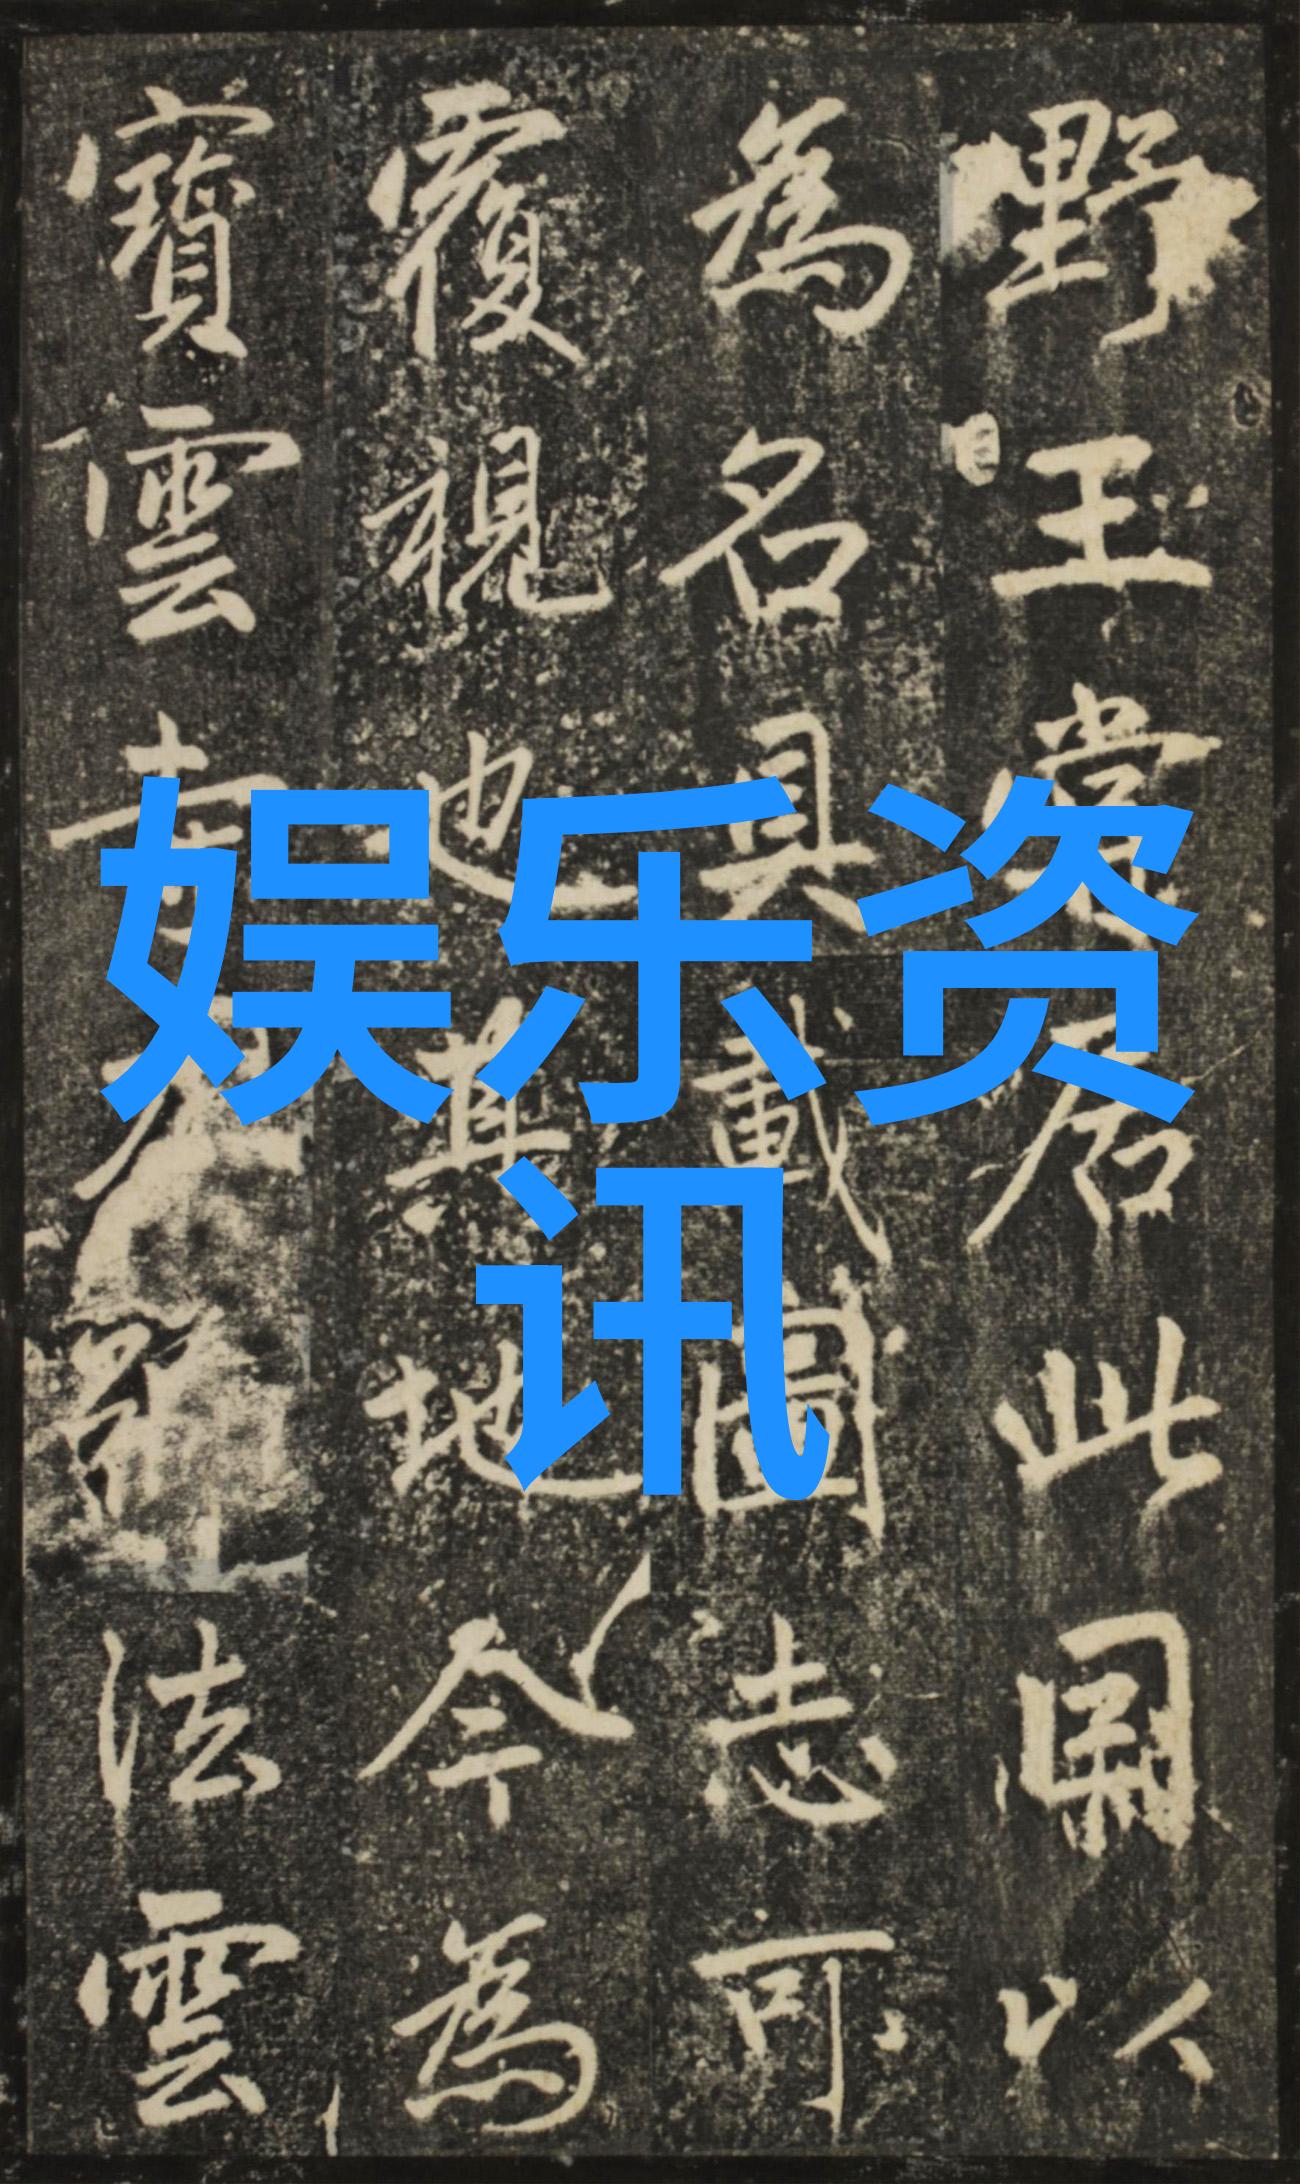 野王居此以
為名具載圖志可
覆視也其地今為
寶雲寺法雲
娱乐资
讯